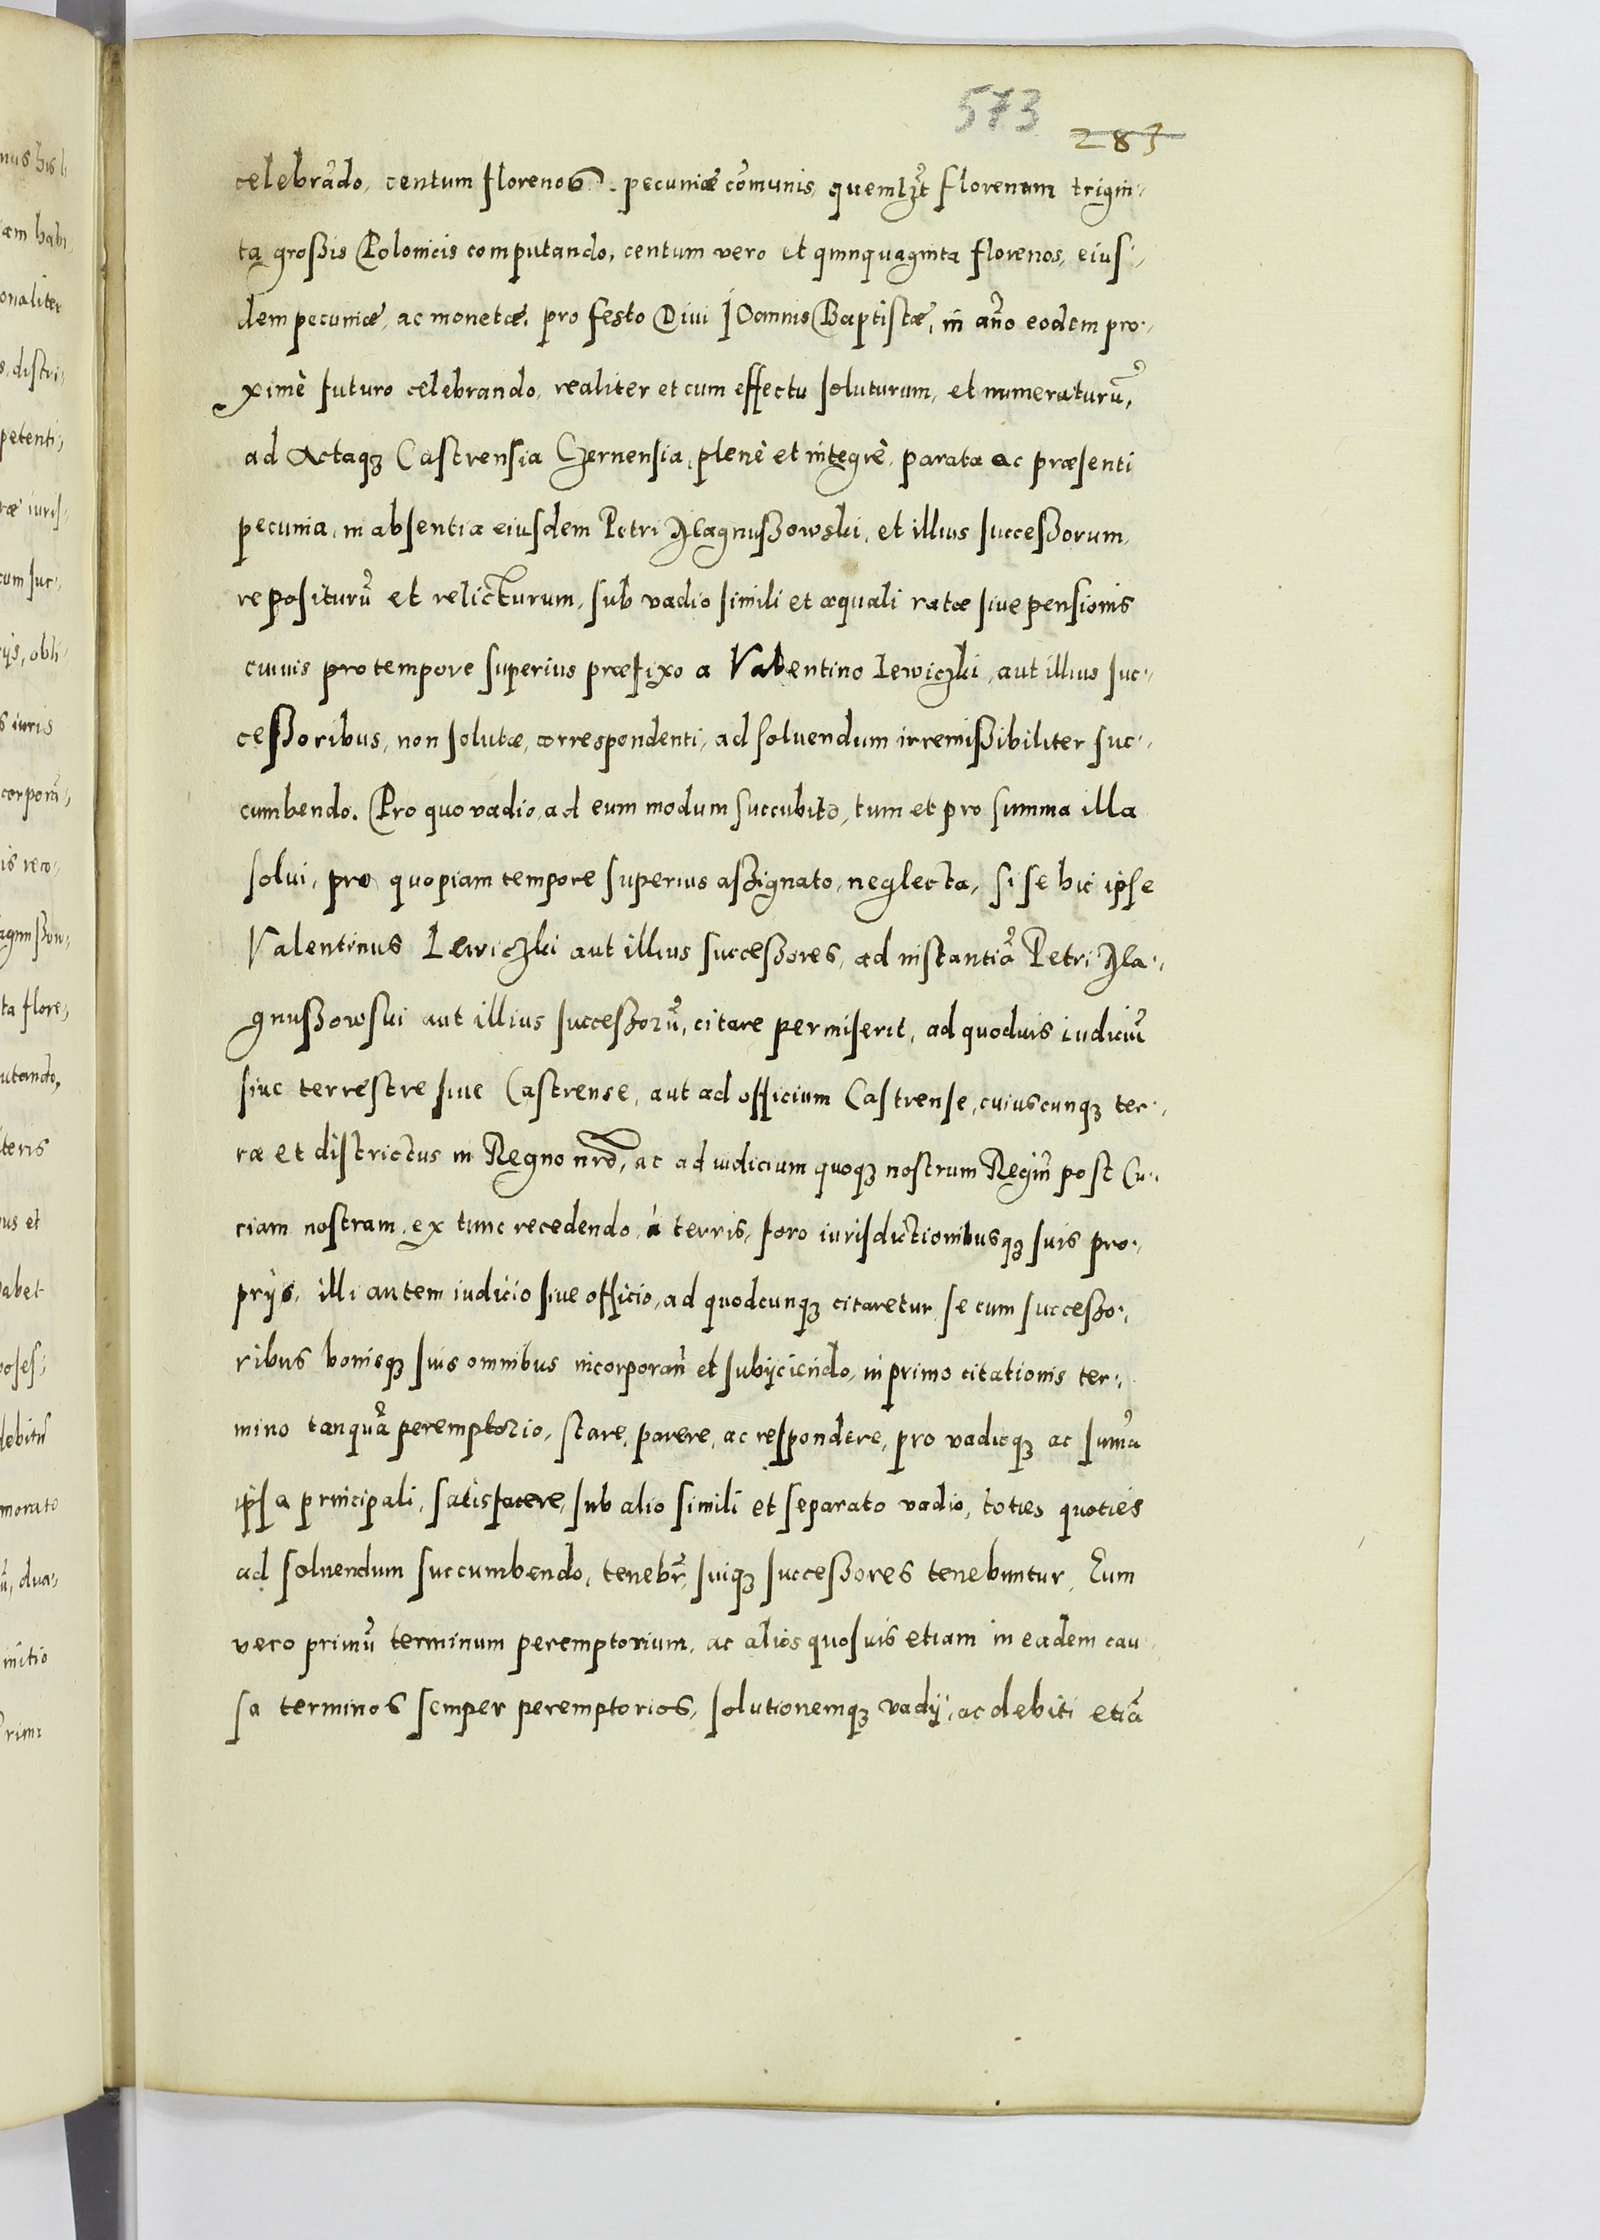 573
283
celebrādo, centum florenos. pecuniæ cōmunis, quemlꝫt florenum trigin-
ta großis Polonicis computando, centum vero et quinquaginta florenos, eius-
dem pecuniæ, ac monetæ, pro festo Diui Joannis Baptistæ, in año eodem pro-
ximè futuro celebrando, realiter et cum effectu soluturum, et numeraturū,
ad Actaqꝫ Castrensia Chernensia, plenè et integrè, parata ac præsenti
pecunia, in absentia eiusdem Petri Zlagnußowski, et illius succeßorum
repositurū et relicturum, sub vadio simili et æquali ratæ siue pensionis
cuiuis pro tempore superius præfixo a Valentino Lewiczki, aut illius suc-
ceßoribus, non solutæ, correspondenti, ad soluendum irremißibiliter suc-
cumbendo. Pro quo vadio, ad eum modum succubito, tum et pro summa illa
solui, pro quopiam tempore superius aßignato, neglecta, si se hic ipse
Valentinus Lewiczki aut illius succeßores, ad instantiā Petri Zla-
gnußowski aut illius succeßorū, citare permiserit, ad quoduis iudiciū
siue terrestre siue Castrense, aut ad officium Castrense, cuiuscunqꝫ ter-
ræ et districtus in Regno nr̃o, ac ad iudicium quoqꝫ nostrum Regiū post Cu-
riam nostram, ex tunc recedendo, à terris, foro iurisdictionibusqꝫ suis pro-
prijs, illi autem iudicio siue officio, ad quodcunqꝫ citaretur, se cum succeßo-
ribus bonisqꝫ suis omnibus incorporañ et subijciendo, in primo citationis ter-
mino tanquā peremptorio, stare, parere, ac respondere, pro vadioqꝫ ac sum̃a
ipsa principali, satisfacere, sub alio simili et separato vadio, toties quoties
ad soluendum succumbendo, tenebr̃, suiqꝫ succeßores tenebuntur, Eum
vero primū terminum peremptorium, ac alios quosuis etiam in eadem cau-
sa terminos semper peremptorios, solutionemqꝫ vadij, ac debiti etiā